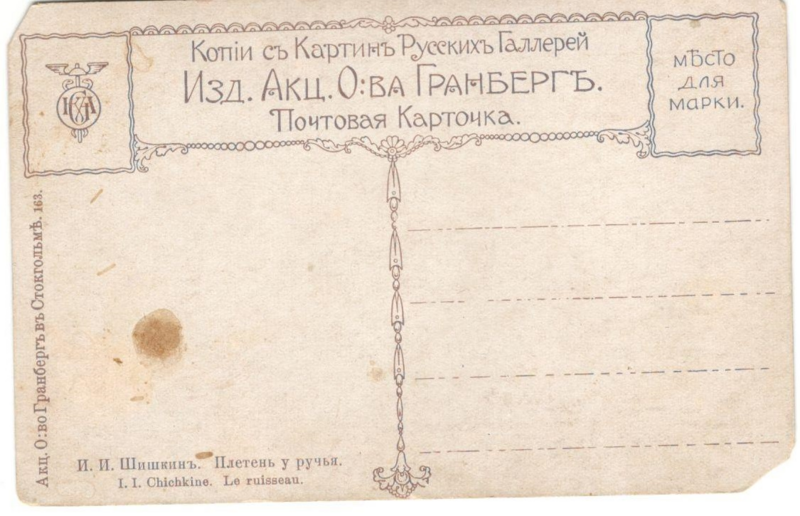 Копіи съ Картинъ Русскихъ Галлерей
Изд. Акц. О:ва Гранбергъ.
Почтовая Карточка.
мѣсто
для
марки.
Акц. О:во Гранбергъ въ Стокгольмѣ. 163.
И. И. Шишкинъ. Плетень у ручья.
I. I. Chichkine. Le ruisseau.